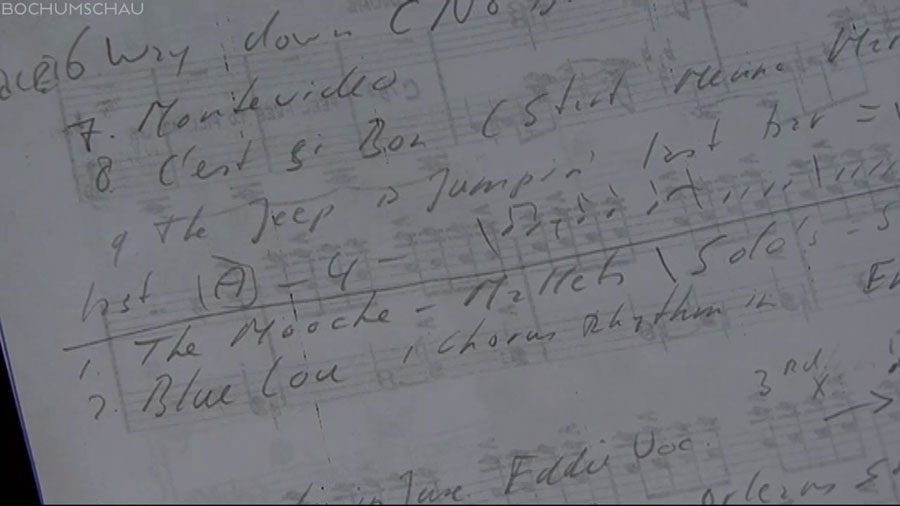 BOCHUMSCHAU
6 Way down (No
7. Montevideo
8 C'est Si Bon (Start
9 The Jeep is Jumpin' last bar =
last (A) - 4 -
1. The Mooche - Mallets \ Solo's - S
2. Blue Lou 1 chorus Rhythm in
3RD X →
in Tune Eddie Voc.